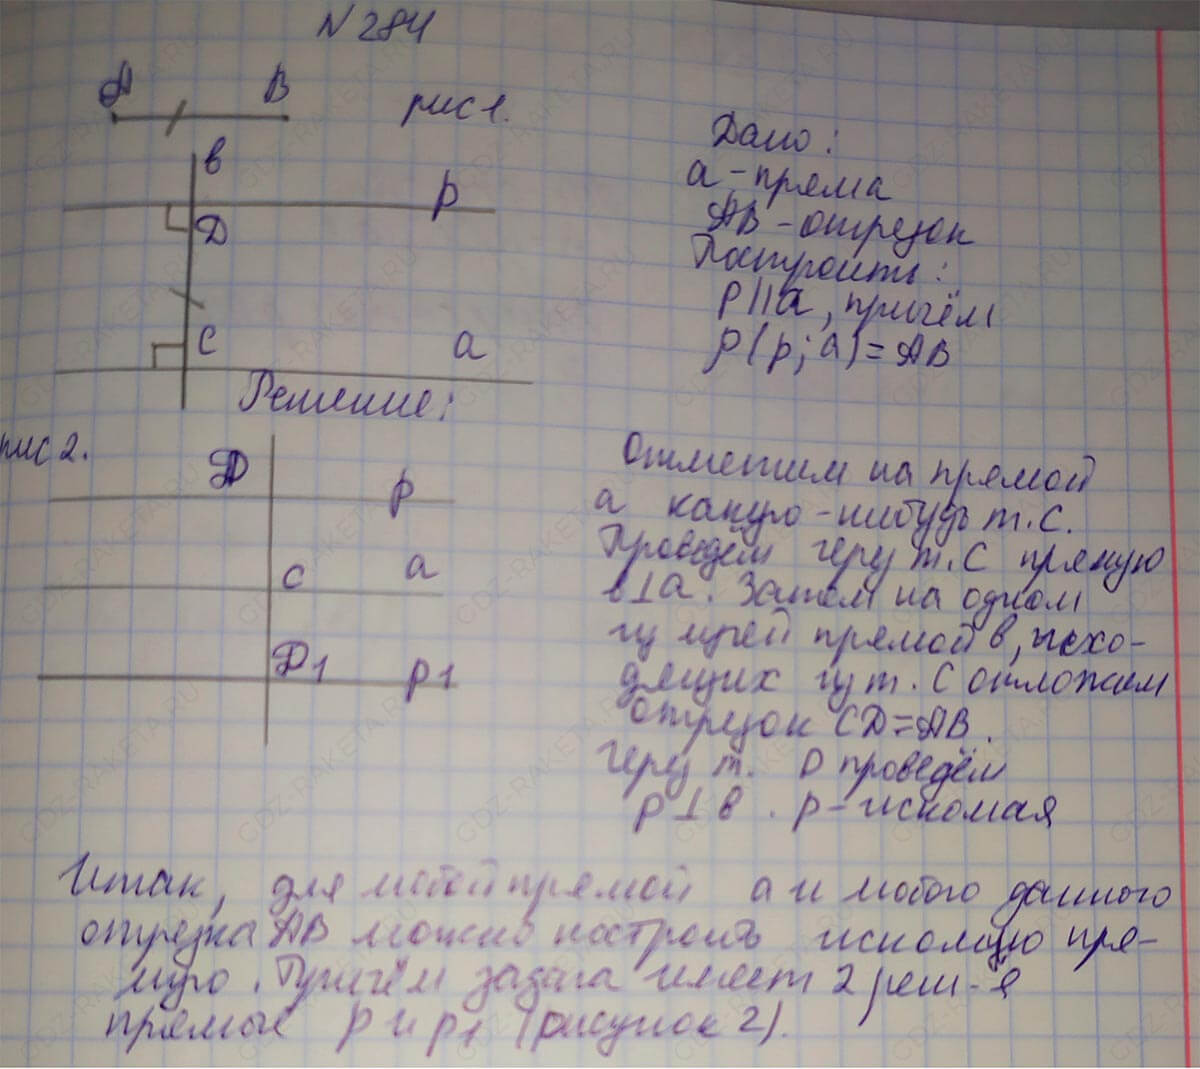 N 284
A B рис 1.
в
р
D
С а
Дано:
а - пряма
AB - отрезок
Построить:
р || а, причём
ρ(р; а) = AB
Решение:
рис 2.
D р
С а
D1 р1
Отметим на прямой
а какую-нибудь т. С.
Проведём через т. С прямую
в ⊥ а. Затем на одном
из лучей прямой в, исхо-
дящих из т. С отложим
отрезок CD = AB.
Через т. D проведём
р ⊥ в. р - искомая
Итак, для любой прямой а и любого данного
отрезка AB можно построить искомую пря-
мую. Причём задача имеет 2 реш-я
прямые р и р1 (рисунок 2).
GDZ-RAKETA.RU